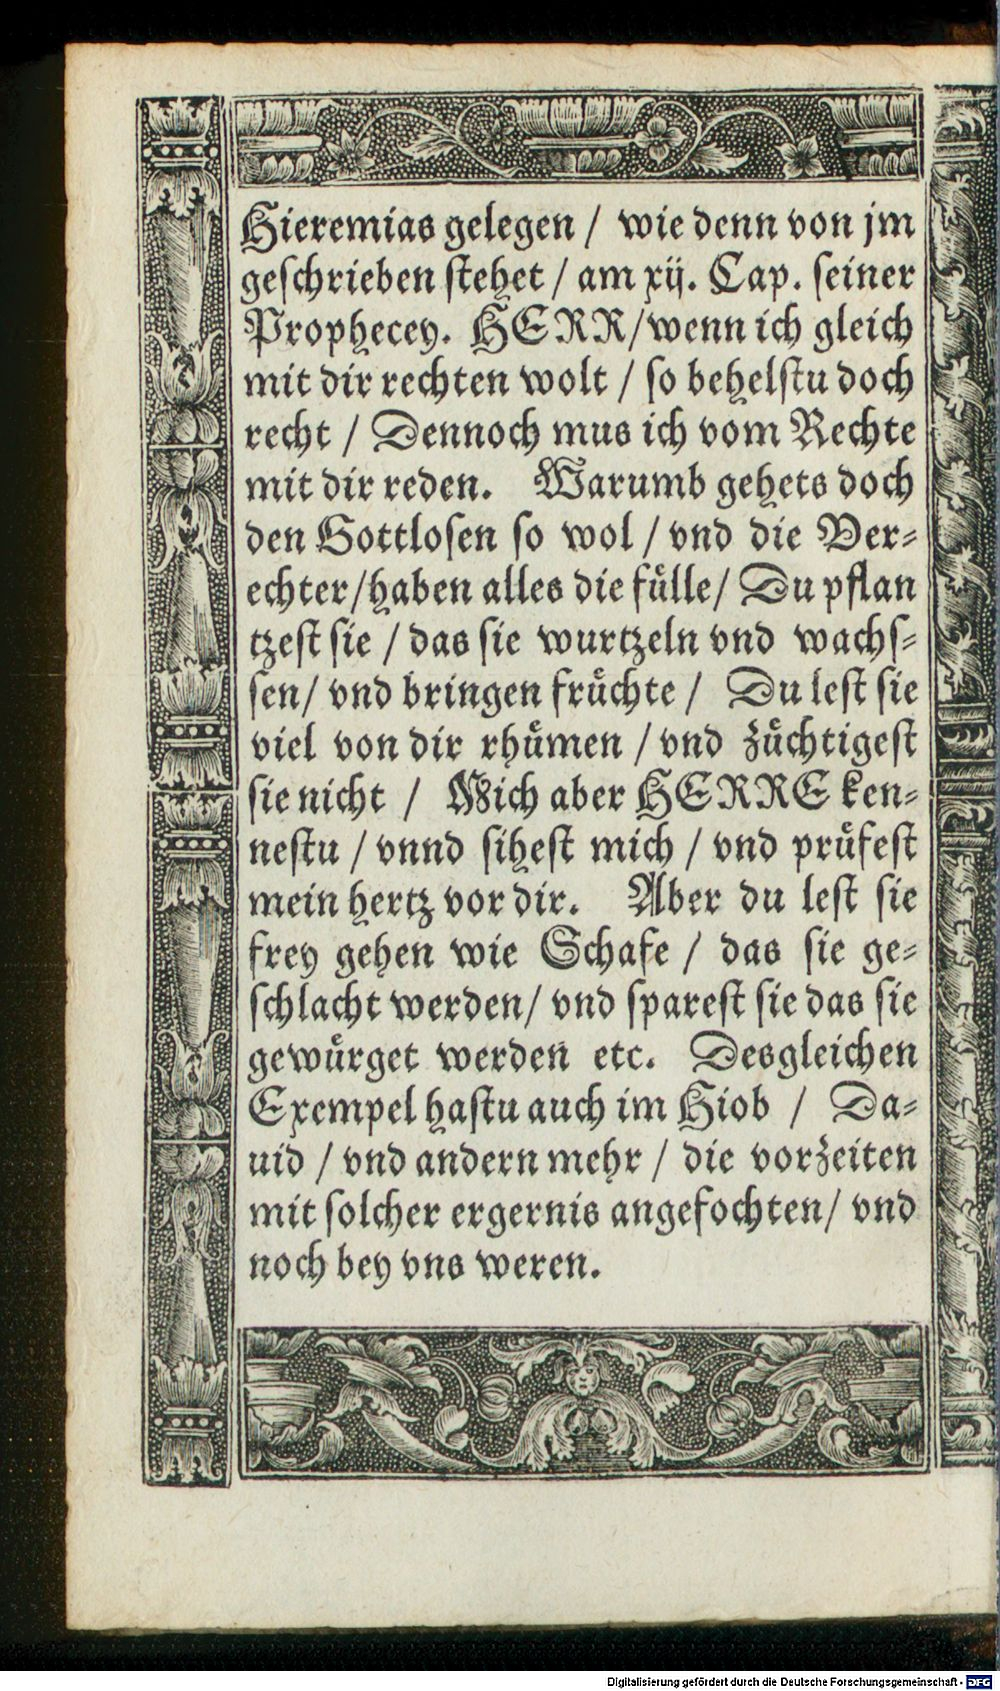 Hieremias gelegen / wie denn von jm
geschrieben stehet / am xij. Cap. seiner
Prophecey. HERR/wenn ich gleich
mit dir rechten wolt / so behelstu doch
recht / Dennoch mus ich vom Rechte
mit dir reden. Warumb gehets doch
den Gottlosen so wol / vnd die Ver-
echter/haben alles die fuͤlle/ Du pflan
tzest sie / das sie wurtzeln vnd wachs-
sen/ vnd bringen fruͤchte / Du lest sie
viel von dir rhuͤmen / vnd zuͤchtigest
sie nicht / Mich aber HERRE ken-
nestu / vnnd sihest mich / vnd pruͤfest
mein hertz vor dir. Aber du lest sie
frey gehen wie Schafe / das sie ge-
schlacht werden/ vnd sparest sie das sie
gewuͤrget werden etc. Desgleichen
Exempel hastu auch im Hiob / Da-
uid / vnd andern mehr / die vorzeiten
mit solcher ergernis angefochten/ vnd
noch bey vns weren.
Digitalisierung gefördert durch die Deutsche Forschungsgemeinschaft - DFG